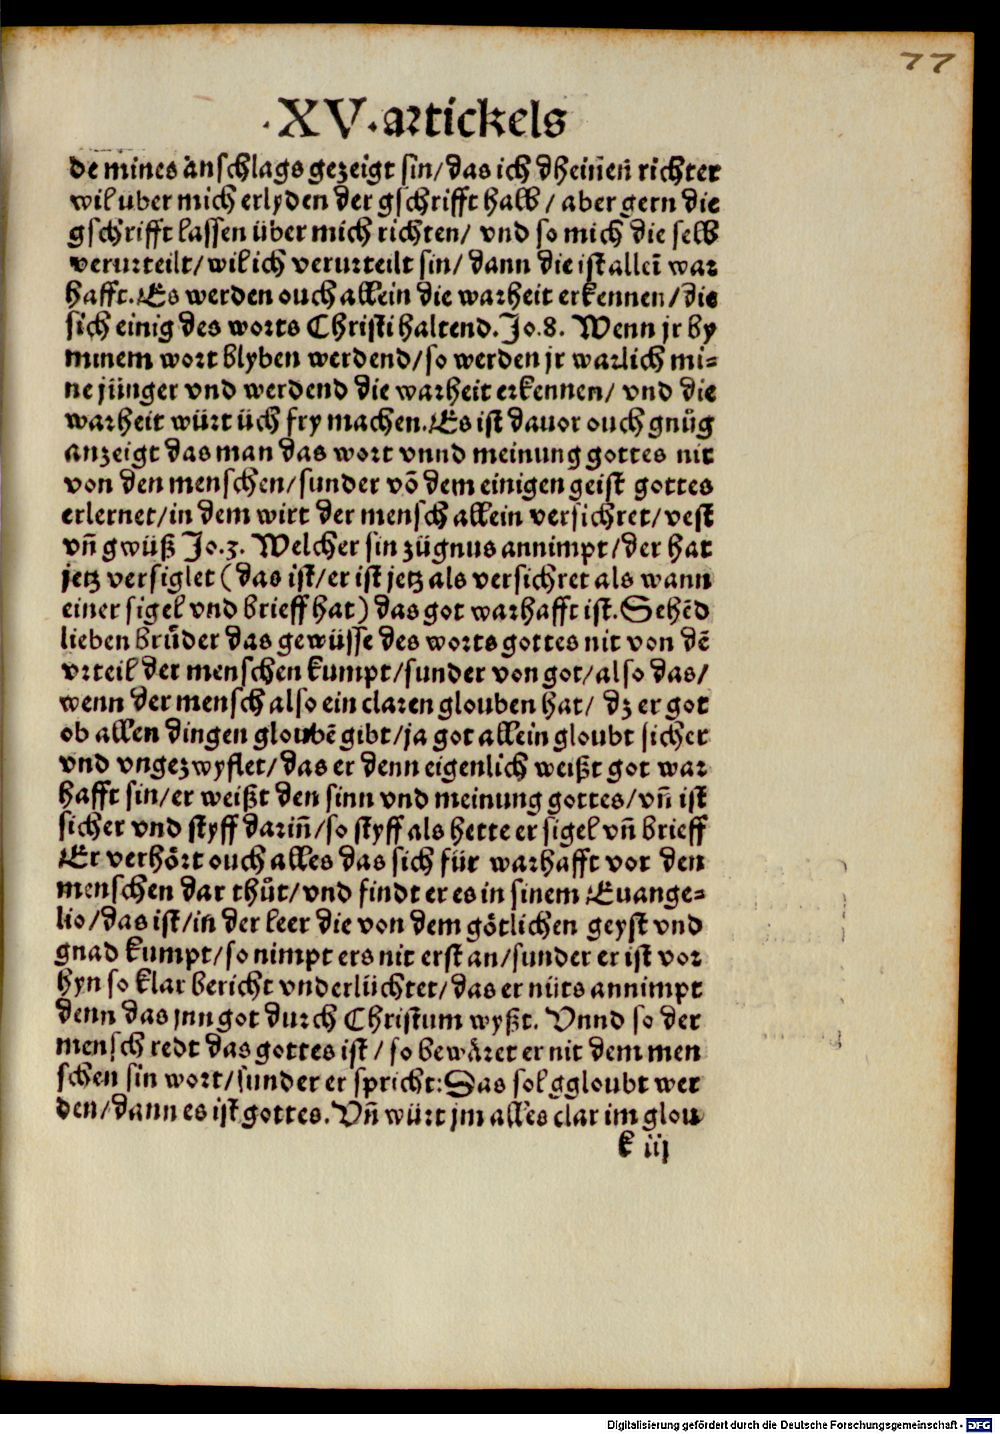 77
.XV.artickels
de mines anschlags gezeigt sin/das ich dheinen richter
wil uber mich erlyden der gschrifft halb / aber gern die
gschrifft lassen über mich richten/ vnd so mich die selb
verurteilt/wil ich verurteilt sin/ dann die ist alleī war
hafft. Es werden ouch allein die warheit erkennen/die
sich einig des worts Christi haltend. Jo.8. Wenn jr by
minem wort blyben werdend/so werden jr warlich mi-
ne jünger vnd werdend die warheit erkennen/ vnd die
warheit würt üch fry machen. Es ist dauor ouch gnůg
anzeigt das man das wort vnnd meinung gottes nit
von den menschen/sunder võ dem einigen geist gottes
erlernet/in dem wirt der mensch allein versichret/vest
vñ gwüß Jo.3. Welcher sin zügnus annimpt/der hat
jetz versiglet (das ist/er ist jetz als versichret als wann
einer sigel vnd brieff hat) das got warhafft ist. Sehēd
lieben brůder das gewüsse des worts gottes nit von dē
vrteil der menschen kumpt/sunder von got/also das/
wenn der mensch also ein claren glouben hat/ dz er got
ob allen dingen gloubē gibt/ja got allein gloubt sicher
vnd vngezwyflet/das er denn eigenlich weißt got war
hafft sin/er weißt den sinn vnd meinung gottes/vñ ist
sicher vnd styff dariñ/so styff als hette er sigel vñ brieff
Er verhört ouch alles das sich für warhafft vor den
menschen dar thůt/vnd findt er es in sinem Euange-
lio/das ist/in der leer die von dem götlichen geyst vnd
gnad kumpt/so nimpt ers nit erst an/sunder er ist vor
hyn so klar bericht vnd erlüchtet/das er nüts annimpt
denn das jnn got durch Christum wyßt. Vnnd so der
mensch redt das gottes ist / so bewäret er nit dem men
schen sin wort/sunder er spricht: Das sol ggloubt wer
den/dann es ist gottes. Vñ würt jm alles clar im glou
k iij
Digitalisierung gefördert durch die Deutsche Forschungsgemeinschaft - DFG